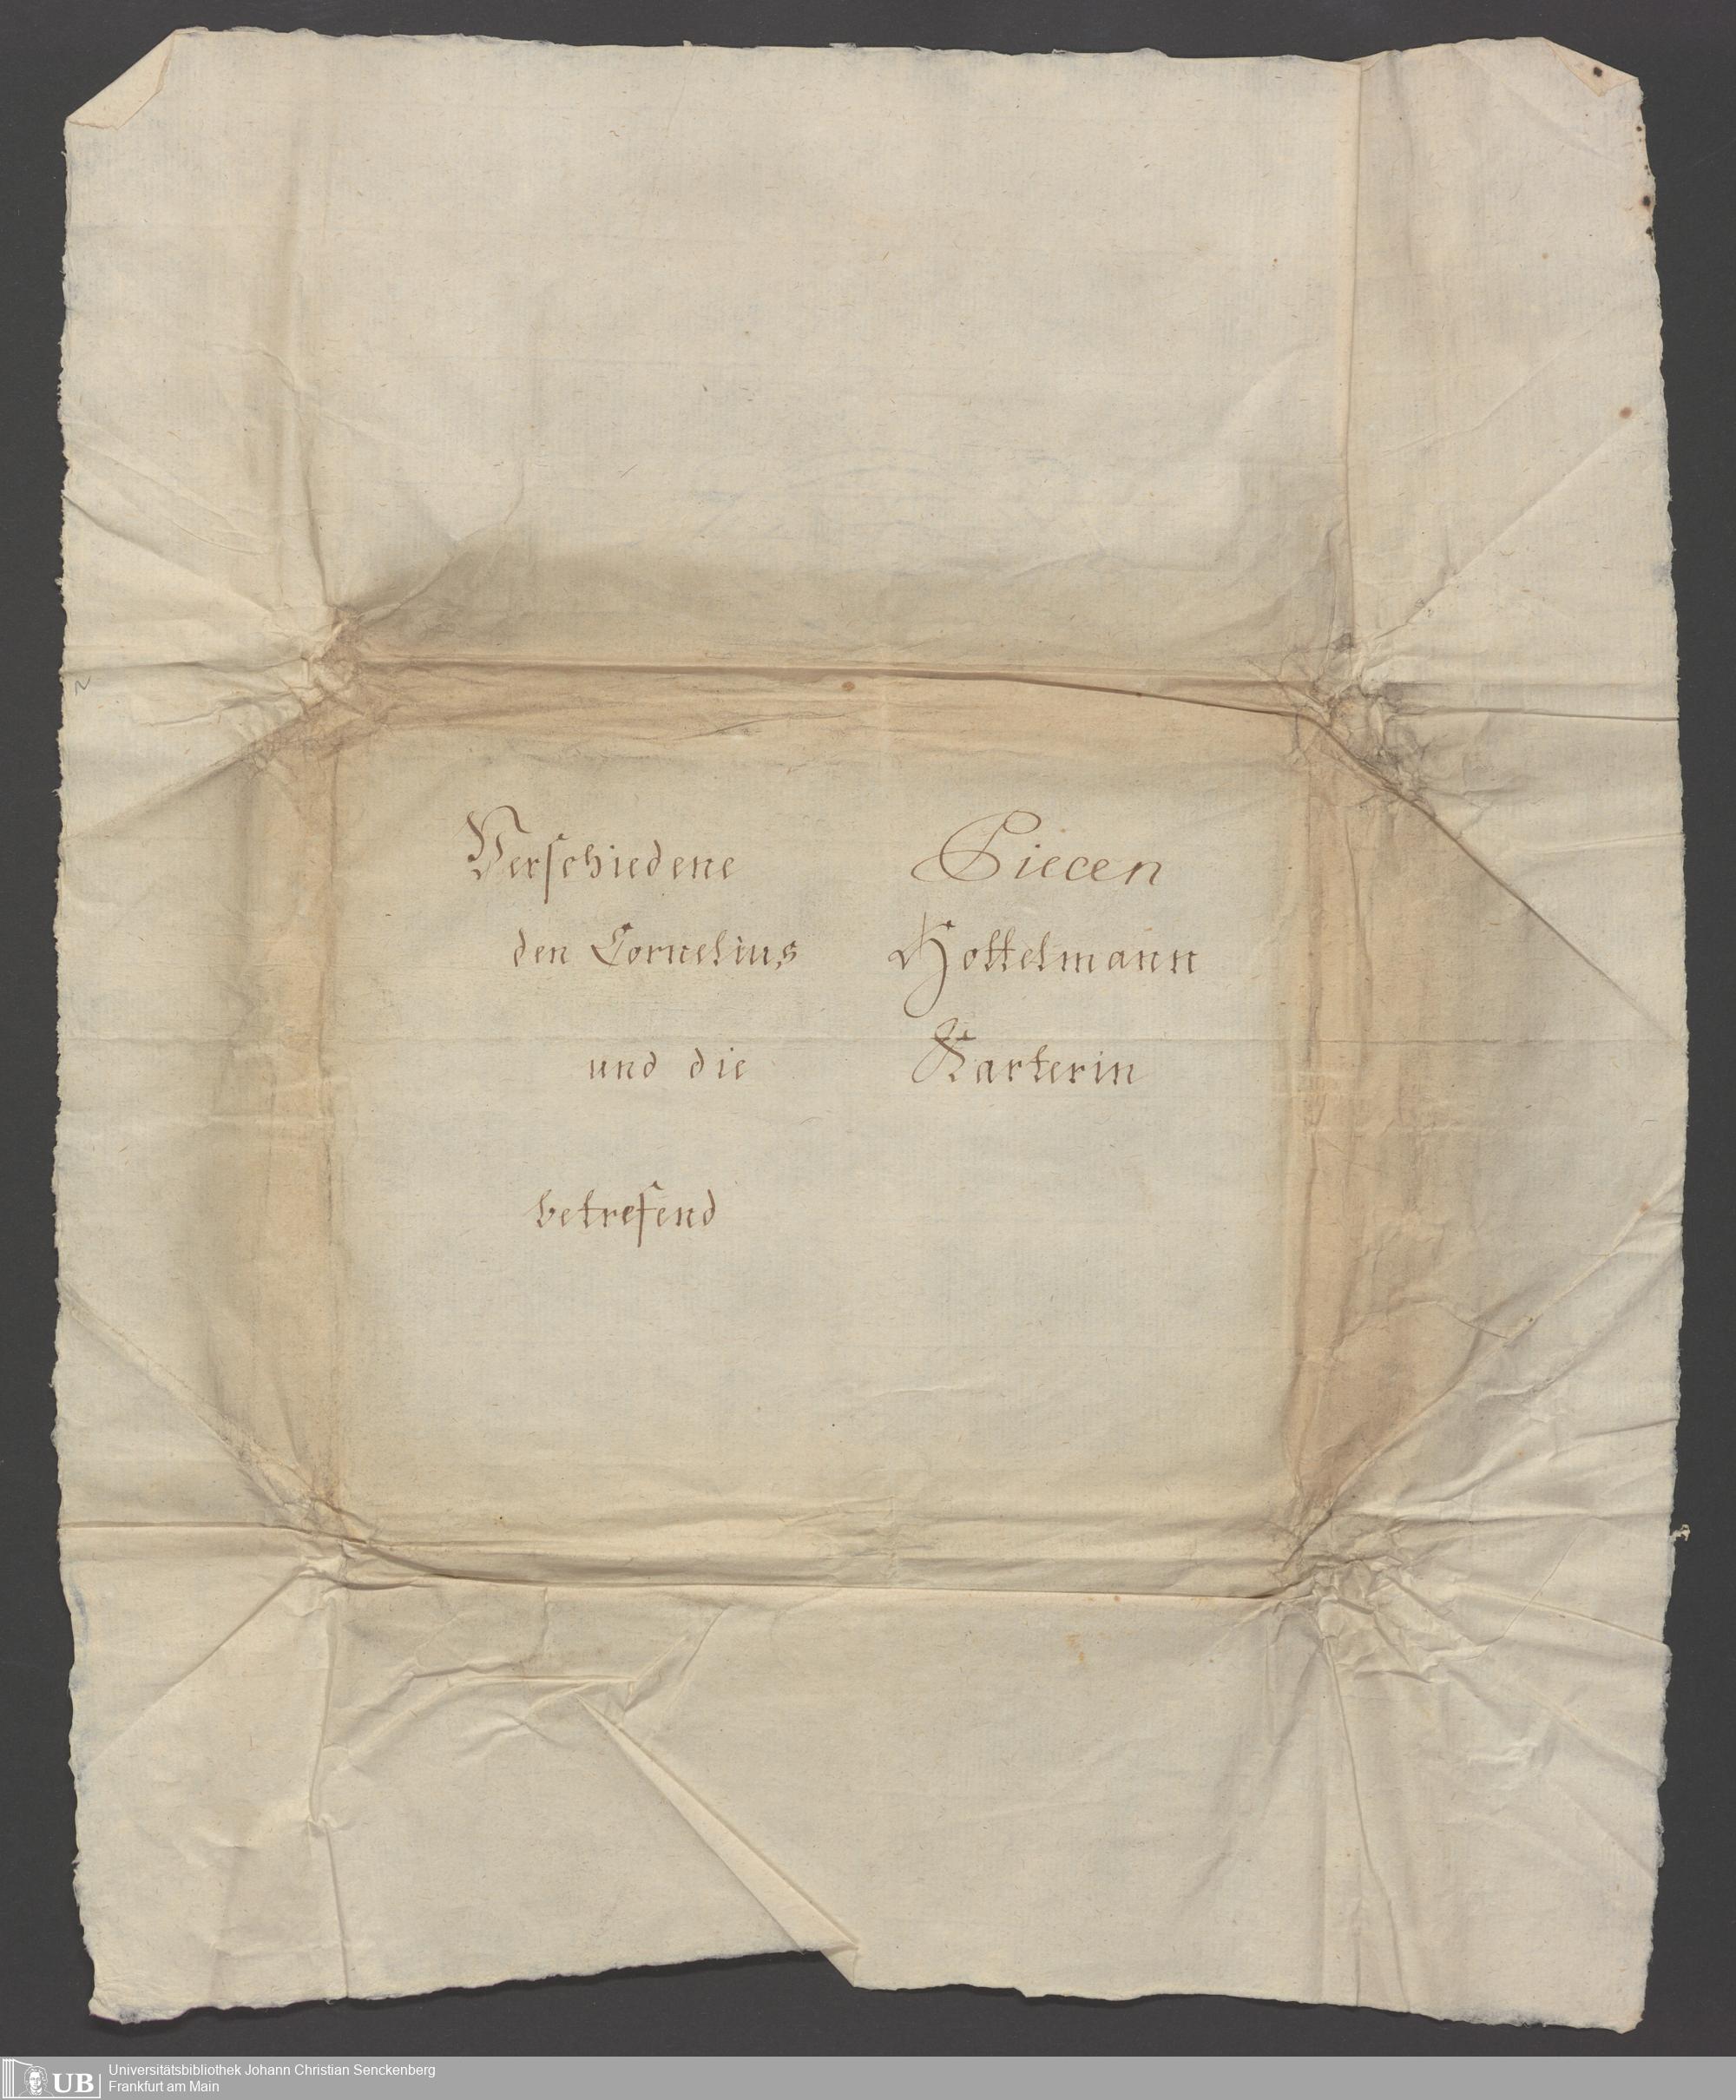 Verschiedene Piecen
den Cornelius Hottelmann
und die Karterin
betrefend
UB Universitätsbibliothek Johann Christian Senckenberg
Frankfurt am Main